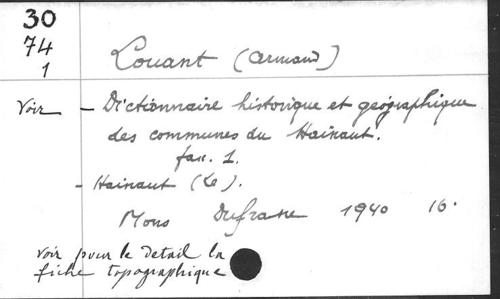 30
74
1
Louant (Armand)
Voir - Dictionnaire historique et géographique
des communes du Hainaut.
fasc. 1.
- Hainaut (Le).
Mons Dufrane 1940 16°
Voir pour le detail la
fiche topographique